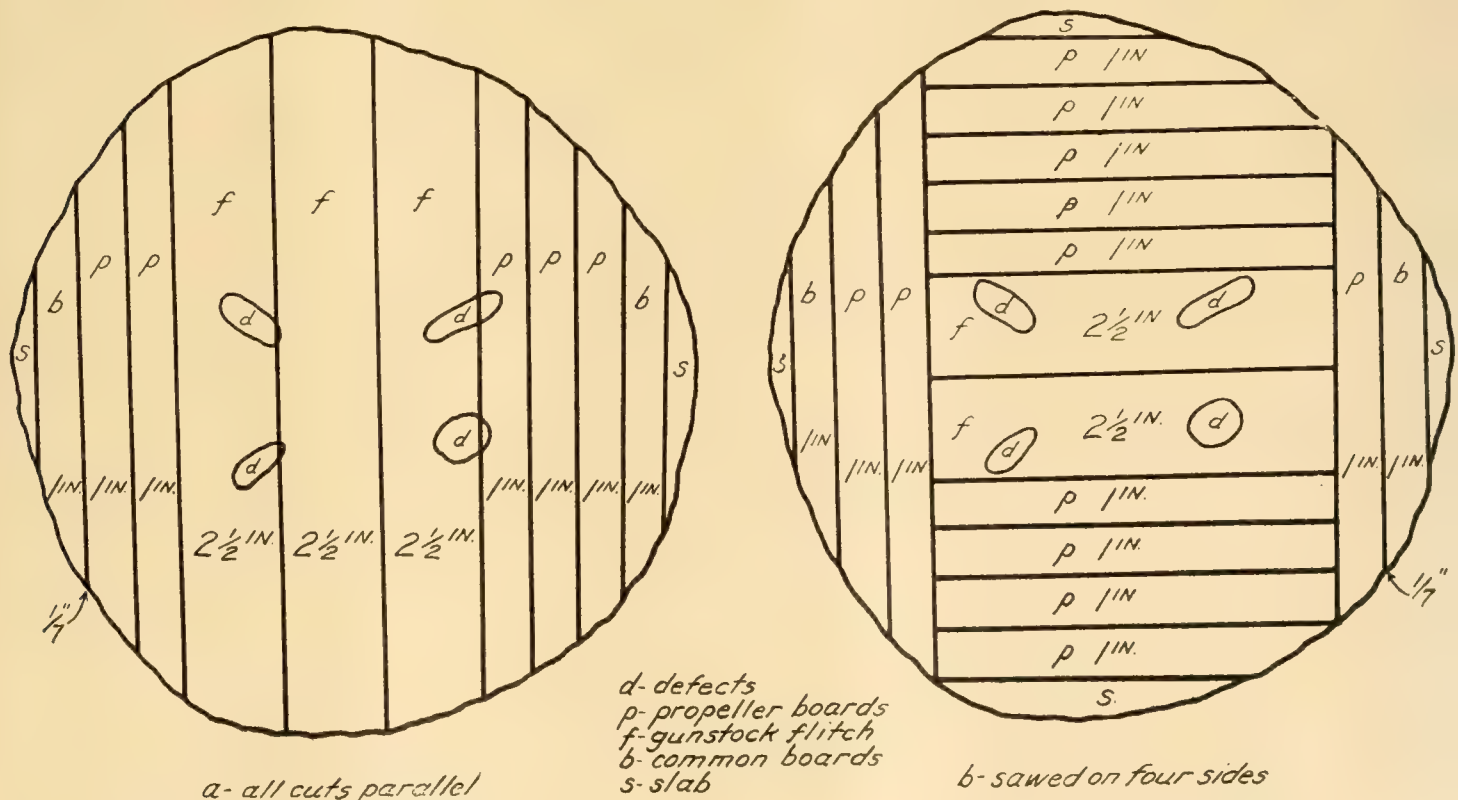 f f f
p p p p p
b b
d d
s s
d d
1 IN. 1 IN. 1 IN. 1 IN. 1 IN. 1 IN. 1 IN.
2 1/2 IN. 2 1/2 IN. 2 1/2 IN.
1/7"
a- all cuts parallel
d- defects
p- propeller boards
f- gunstock flitch
b- common boards
s- slab
s
p 1 IN
p 1 IN
p 1 IN
p 1 IN
p 1 IN
b p p p b
d d
f 2 1/2 IN
s s
f d d 2 1/2 IN.
1 IN 1 IN. 1 IN. 1 IN. 1 IN.
p 1 IN.
p 1 IN.
p 1 IN
p 1 IN.
s.
1/7"
b- sawed on four sides